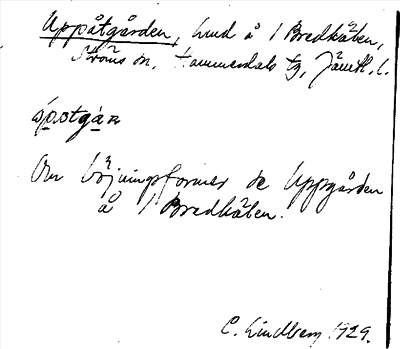 Uppåtgården, hmd å 1 Bredkälen,
Ströms sn, Hammerdals tg, Jämtl. l.
åpotgan
Om böjningsformer se Uppgården
å 1 Bredkälen.
C. Lindberg 1929.